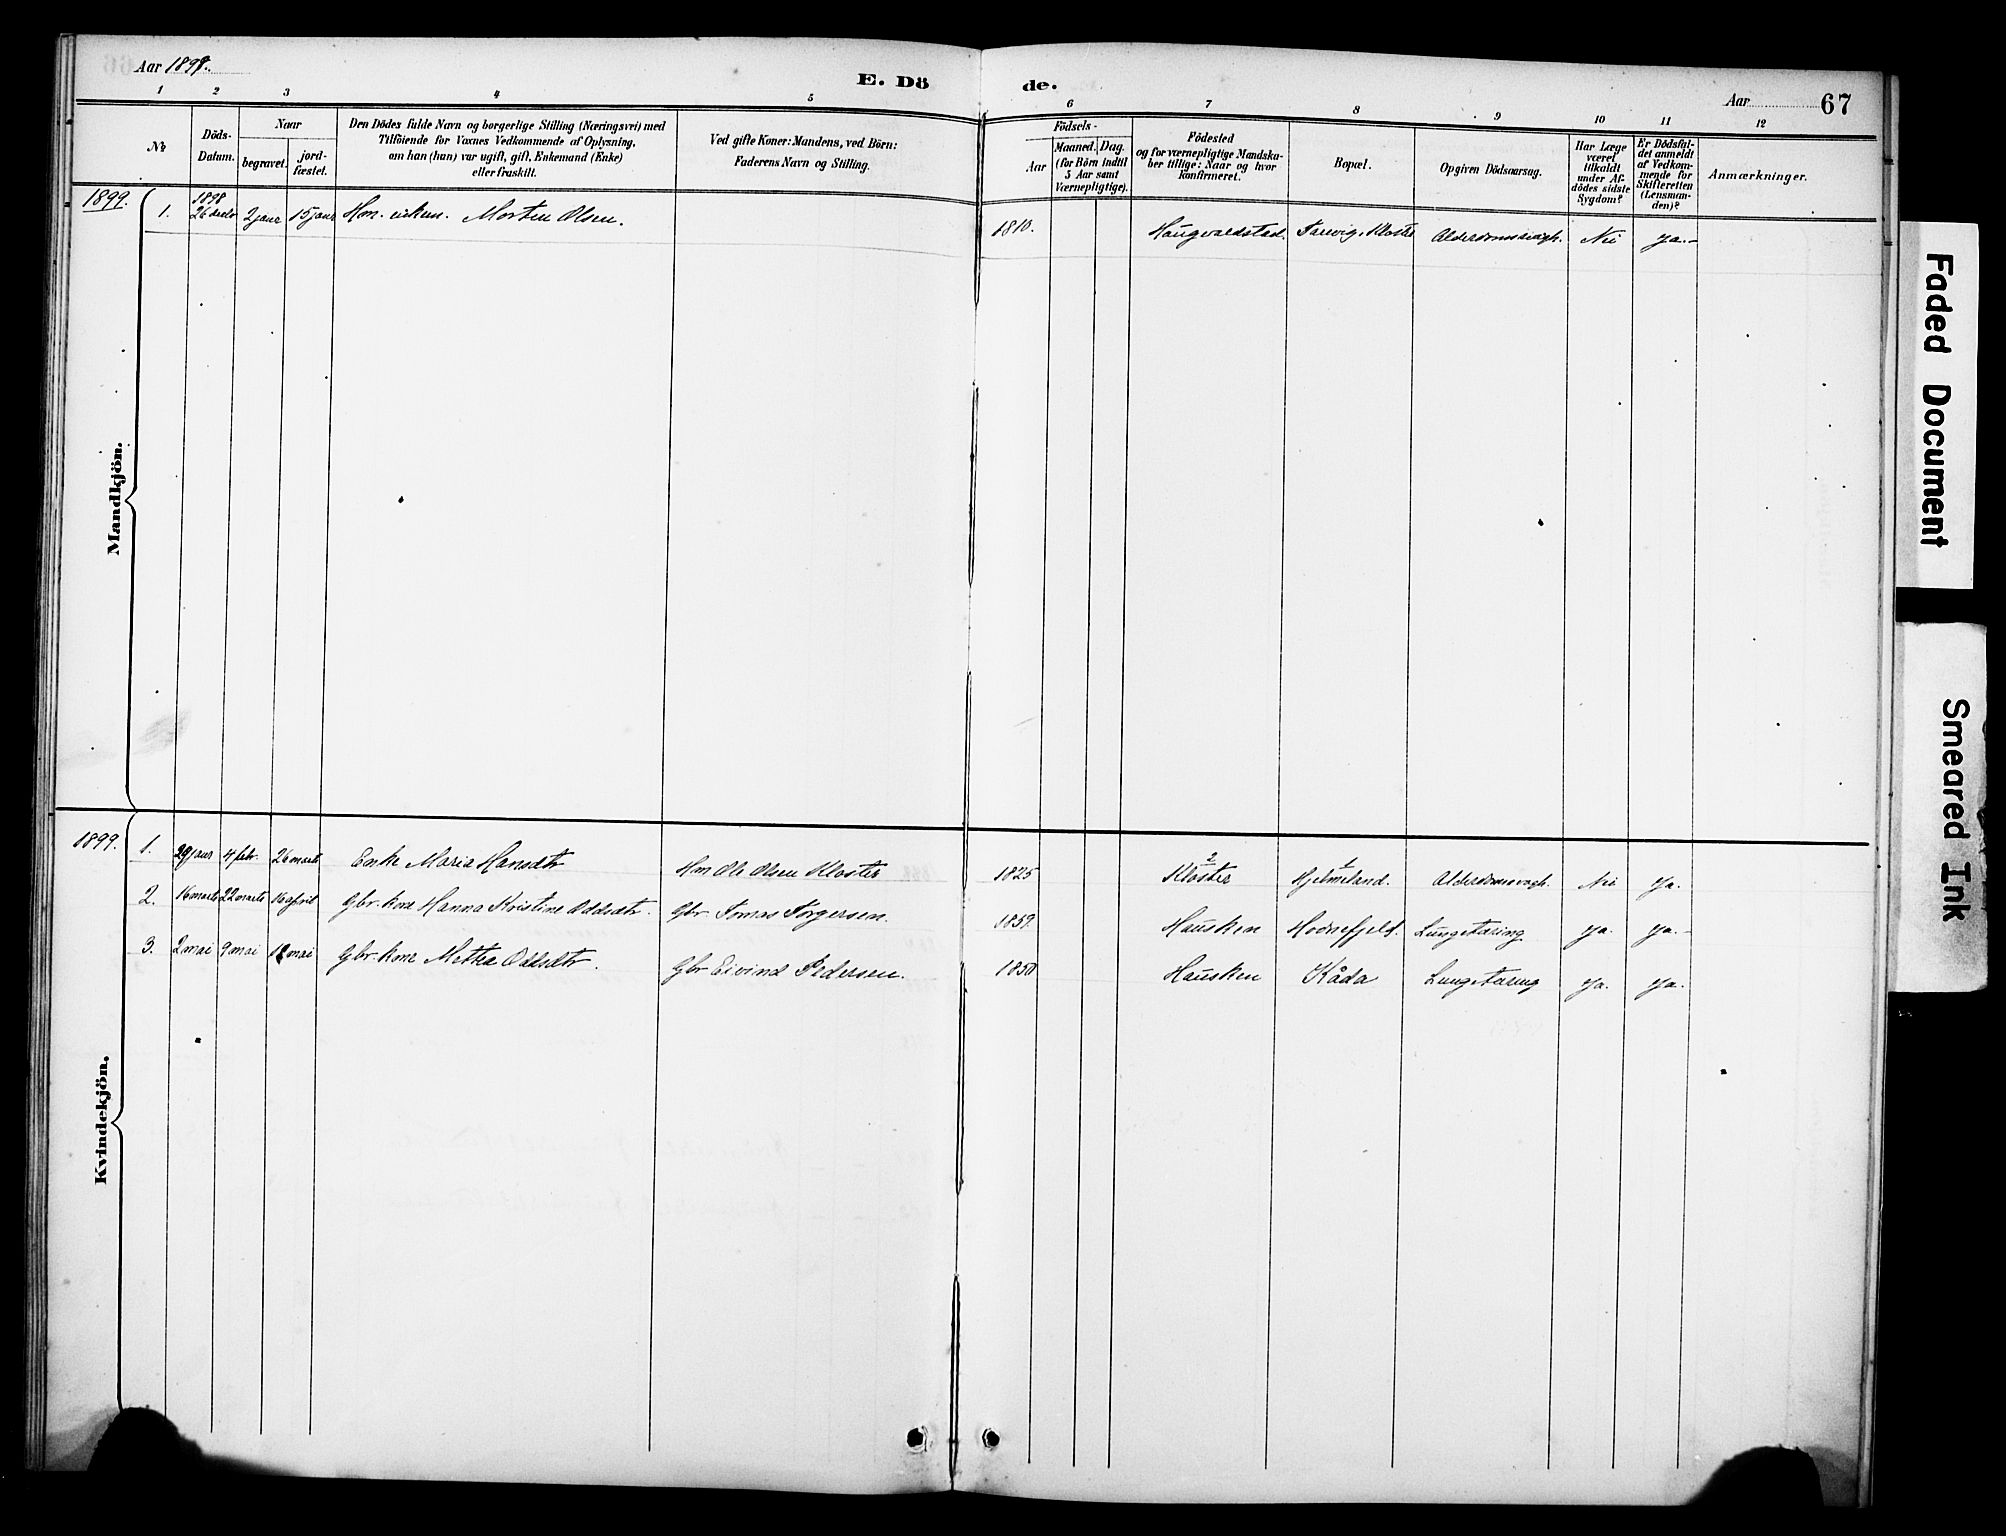 Aar 1899.
E. Dö
de.
Aar
67
1 2 3 4 5 6 7 8 9 10 11 12
No
Döds-Datum.
Naar
begravet.
jord-fæstet.
Den Dödes fulde Navn og borgerlige Stilling (Næringsvei) med
Tilföiende for Voxnes Vedkommende af Oplysning,
om han (hun) var ugift, gift, Enkemand (Enke)
eller fraskilt.
Ved gifte Koner: Mandens, ved Börn:
Faderens Navn og Stilling.
Födsels-
Aar
Maaned. Dag.
(for Börn indtil
5 Aar samt
Værnepligtige).
Födested
og for værnepligtige Mandska-
ber tillige: Naar og hvor
konfirmeret.
Bopæl.
Opgiven Dödsaarsag.
Har Læge
været
tilkaldt
under Af-
dödes sidste
Sygdom?
Er Dödsfal-
det anmeldt
af Vedkom-
mende for
Skifteretten
(Lensman-
den)?
Anmærkninger.
1899.
1898
1. 26 decbr 2 janr 15 janr Hm. enkem. Morten Olsen. 1810. Haugvaldstad. Kloster Nei Ja.
Mandkjön.
1899.
1. 29 janr 4 febr. 26 marts Enke Maria Hansdtr Hm Ole Olsen Kloster 1825 2 Kloster 1 Hjelmeland. Nei Ja.
2. 16 marts 22 marts 16 april Gbr. kone Hanna Kristine Oddsdtr. Gbr Tomas Torgersen. 1859. Hausken Hodnefjeld. Lungetæring Ja. Ja.
3. 2 mai 9 mai mai Gbr. kone Metha Oddsdtr. Gbr Eivind Pedersen. 1850 Hausken Kåda Lungetæring Ja. Ja.
Kvindekjön.
Faded Document
Smeared Ink